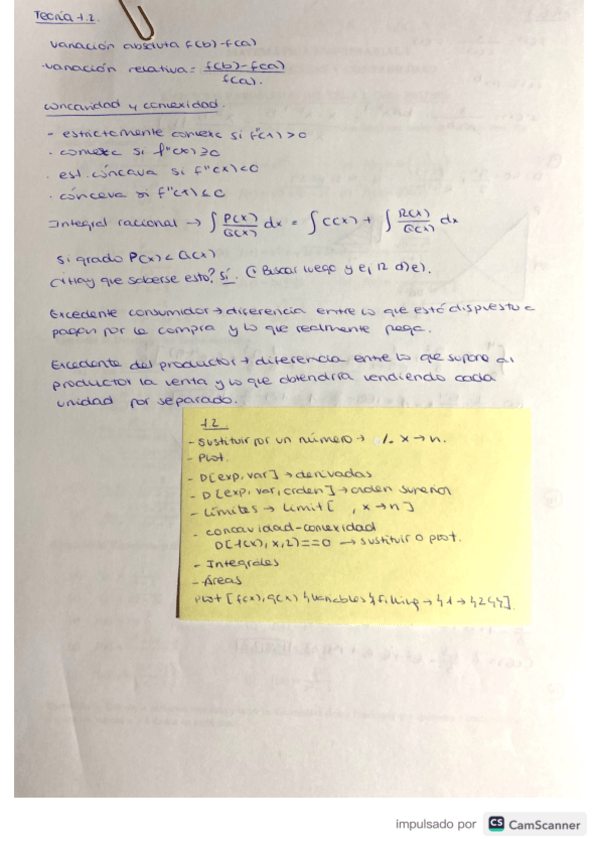 Teoría 1.2.
Variación absoluta f(b)-f(a)
·Variación relativa= f(b)-f(a) / f(a).
concavidad y convexidad.
- estrictamente convexa si f''(x) >0
· convexa si f''(x) ≥0
· est. cóncava si f''(x) <0
· cóncava si f''(x) ≤0
Integral racional → ∫ P(x)/Q(x) dx = ∫ C(x) + ∫ R(x)/Q(x) dx
Si grado P(x) < Q(x)
¿Hay que saberse esto? Sí. (Buscar luego y ej 12 d) e).
Excedente consumidor → diferencia entre lo que está dispuesto a
pagar por la compra y lo que realmente paga.
Excedente del productor → diferencia entre lo que supone al
productor la venta y lo que obtendría vendiendo cada
unidad por separado.
1.2
- Sustituir por un número → /. x → n.
- Plot.
- D[exp, var] → derivadas
- D[exp, var, orden] → orden superior
- Límites → Limit[ , x → n]
- concavidad-convexidad
D[f(x), x, 2] == 0 → sustituir o plot.
- Integrales
- Áreas
Plot [f(x), g(x) } variables } filling → {1 → {2}}].
impulsado por CS CamScanner